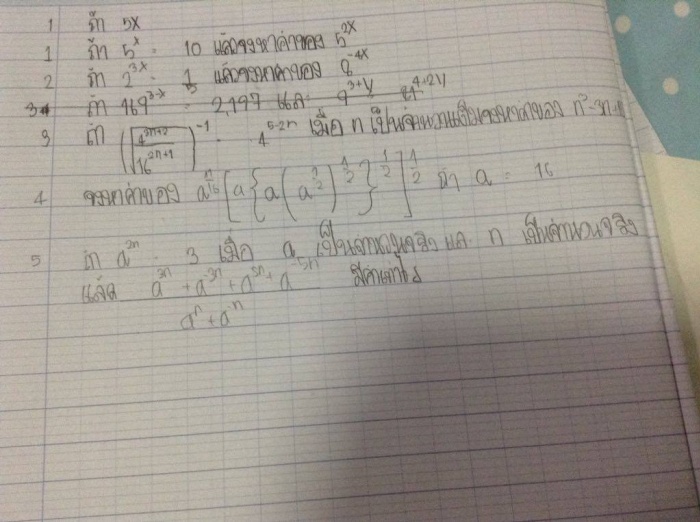 1 ถ้า 5X
1 ถ้า 5^x = 10 แล้วจงหาค่าของ 5^2X
2 ถ้า 2^3x = 1/5 แล้วจงหาค่าของ 8^-4X
3 ถ้า 169^3-x = 2,197 และ 9^3+y 81^4+2y
3 ถ้า (√(4^3n+2 / 16^2n+1))^-1 = 4^5-2n เมื่อ n เป็นจำนวนเต็มจงหาค่าของ
4 จงหาค่าของ [a{a(a^1/2)^1/2}^1/2]^1/2 ถ้า a = 16
5 ถ้า a^2n = 3 เมื่อ a เป็นจำนวนจริง และ n เป็นจำนวนจริง
แล้ว a^3n + a^-3n + a^5n + a^-5n มีค่าเท่าไร
a^n + a^-n